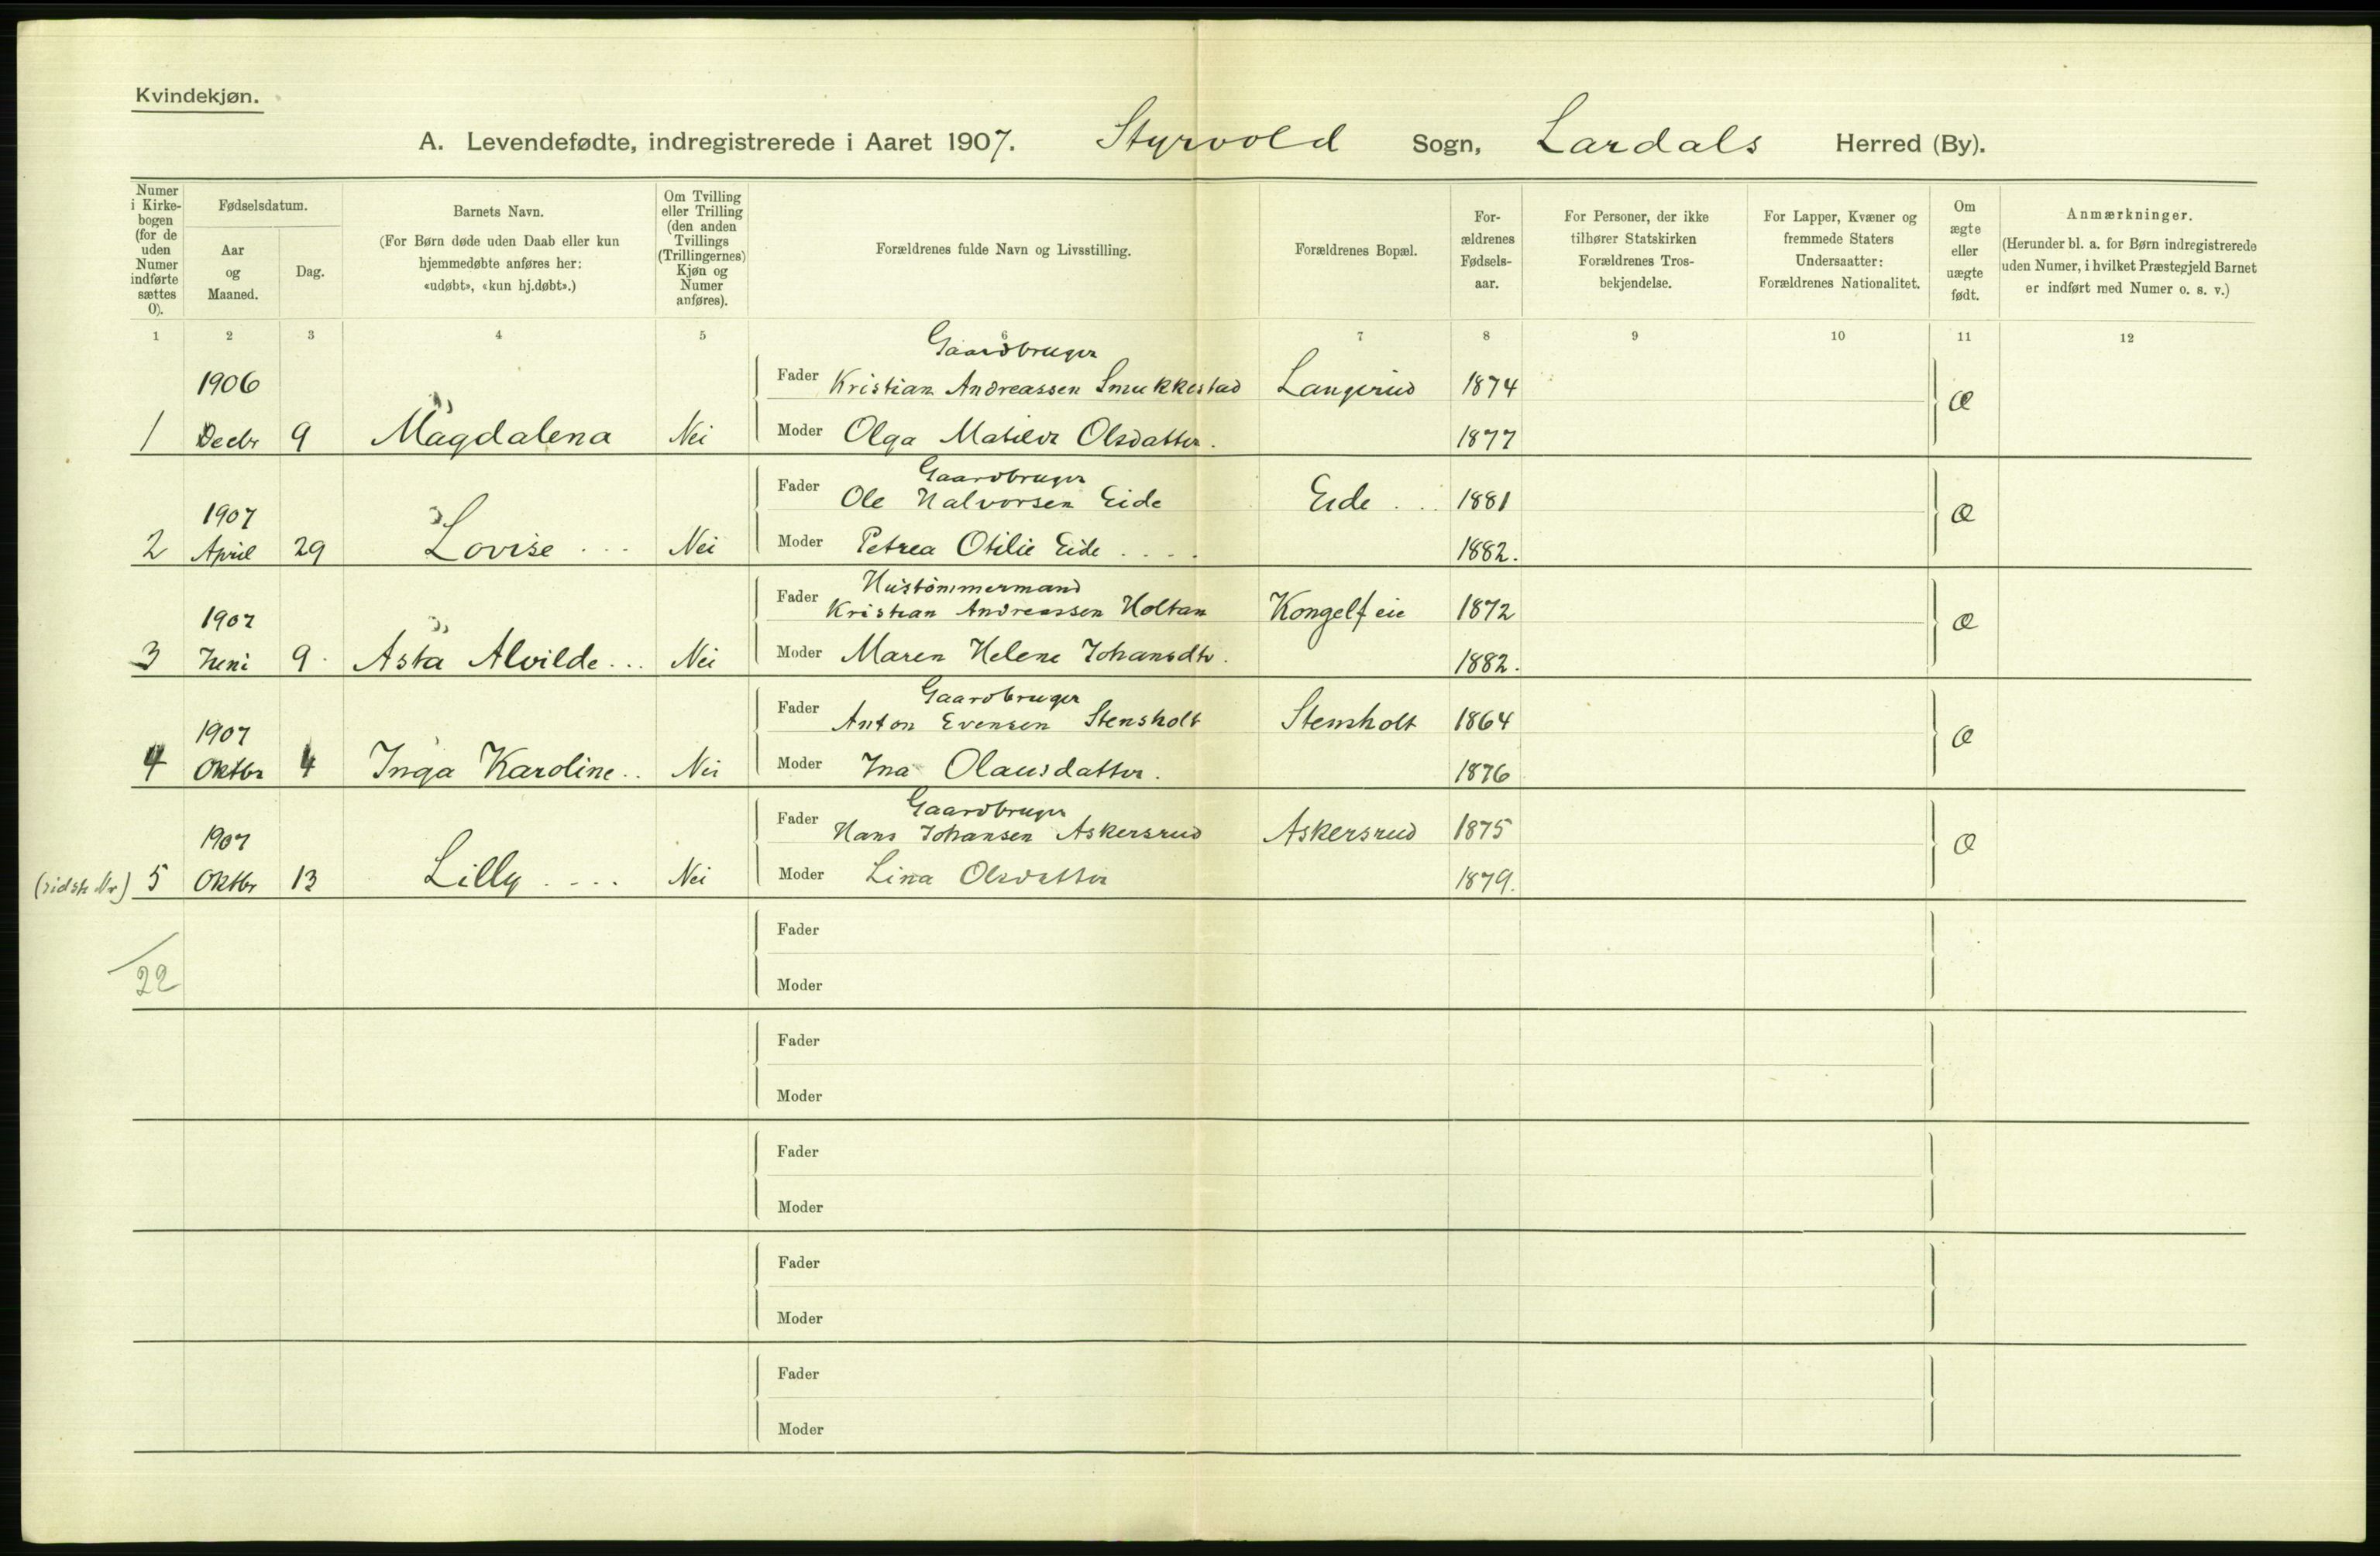 Kvindekjøn.
A. Levendefødte, indregistrerede i Aaret 1907. Styrvold Sogn, Lardals Herred (By).
Numer i Kirkebogen (for de uden Numer indførte sættes 0).
Fødselsdatum.
Aar og Maaned.
Dag.
Barnets Navn.
(For Børn døde uden Daab eller kun hjemmedøbte anføres her: «udøbt», «kun hj.døbt».)
Om Tvilling eller Trilling (den anden Tvillings (Trillingernes) Kjøn og Numer anføres).
Forældrenes fulde Navn og Livsstilling.
Forældrenes Bopæl.
Forældrenes Fødselsaar.
For Personer, der ikke tilhører Statskirken Forældrenes Trosbekjendelse.
For Lapper, Kvæner og fremmede Staters Undersaatter: Forældrenes Nationalitet.
Om ægte eller uægte født.
Anmærkninger.
(Herunder bl. a. for Børn indregistrerede uden Numer, i hvilket Præstegjeld Barnet er indført med Numer o. s. v.)
1 2 3 4 5 6 7 8 9 10 11 12
Gaardbruger
1906 Fader Kristian Andreassen Smukkestad Langerud 1874 Æ
1 Decbr 9 Magdalena Nei Moder Olga Matilde Olsdatter. 1877
Gaardbruger
1907 Fader Ole Halvorsen Eide Eide . .. 1881 Æ
2 April 29 Lovise ... Nei Moder Petrea Otilie Eide .... 1882.
Hustømmermand
1907 Fader Kristian Andreassen Holtan Kongelf eie 1872 Æ
3 Juni 9. Asta Alvilde... Nei Moder Maren Helene Johansdtr. 1882.
Gaardbruger
1907 Fader Anton Evensen Stensholt Stensholt 1864 Æ
4 Oktbr 4 Inga Karoline.. Nei Moder Ina Olausdatter. 1876
Gaardbruger
1907 Fader Hans Johansen Askersrud Askersrud 1875 Æ
(sidste Nr) 5 Oktbr 13 Lilly .... Nei Moder Lina Olsdatter 1879.
Fader
22
Moder
Fader
Moder
Fader
Moder
Fader
Moder
Fader
Moder